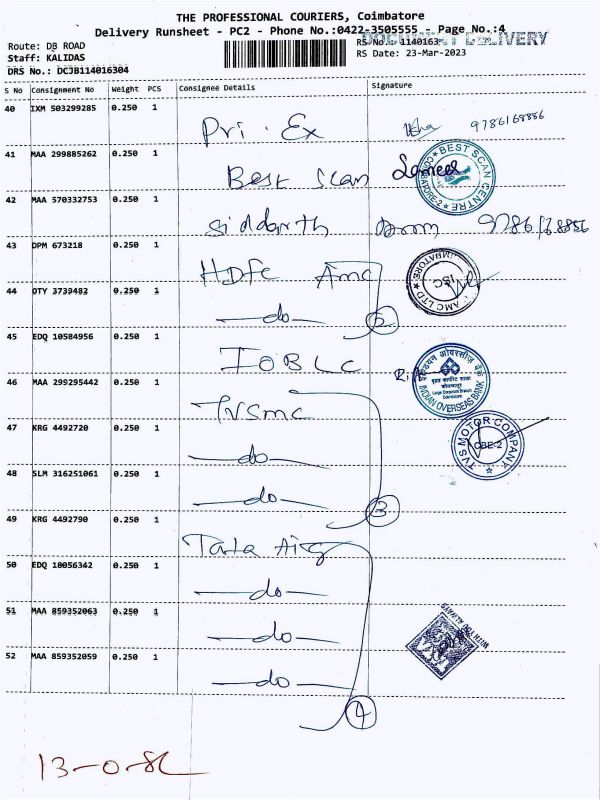 THE PROFESSIONAL COURIERS, Coimbatore
Delivery Runsheet - PC2 - Phone No.:0422-3505555 - Page No.:4
DOCUMENT DELIVERY
Route: DB ROAD
RS No.: 1140163
Staff: KALIDAS
RS Date: 23-Mar-2023
DRS No.: DCJB114016304
S No Consignment No Weight PCS Consignee Details Signature
40 IXM 503299285 0.250 1 Pri. Ex 9786168856
41 MAA 299885262 0.250 1 Best Scan
BEST SCAN CENTRE
42 MAA 570332753 0.250 1 Siddarth 9786168856
43 DPM 673218 0.250 1 HDFC AMC
AMC LTD ISC
44 DTY 3739482 0.250 1 —do—
45 EDQ 10584956 0.250 1 IOB LC
इण्डियन ओवरसीज़ बैंक
INDIAN OVERSEAS BANK
46 MAA 299295442 0.250 1 TVSMC
TVS MOTOR COMPANY
CBE-2
47 KRG 4492720 0.250 1 —do—
48 SLM 316251061 0.250 1 —do—
3
49 KRG 4492790 0.250 1 Tata Aig
50 EDQ 18056342 0.250 1 —do—
51 MAA 859352063 0.250 1 —do—
WITH YOU ALWAYS
52 MAA 859352059 0.250 1 —do—
4
13-0-8L